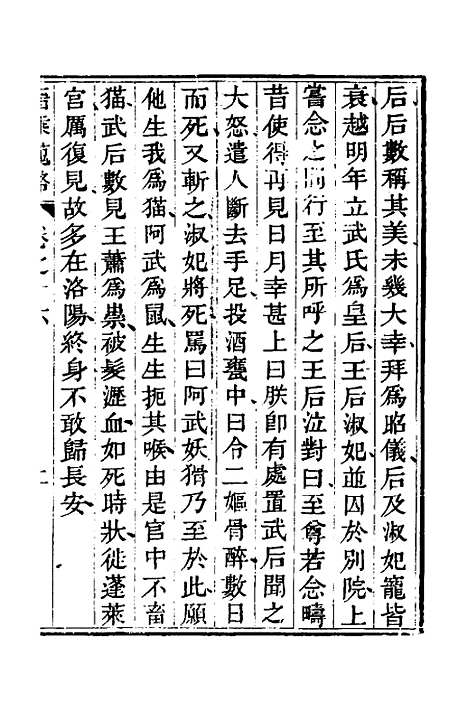 后后數稱其美未幾大幸拜為昭儀后及淑妃寵皆
衰越明年立武氏為皇后王后淑妃並囚於別院上
嘗念之間行至其所呼之王后泣對曰至尊若念疇
昔使得再見日月幸甚上曰朕卽有處置武后聞之
大怒遣人斷去手足投酒甕中曰令二嫗骨醉數日
而死又斬之淑妃將死罵曰阿武妖猾乃至於此願
他生我為猫阿武為鼠生生扼其喉由是官中不畜
猫武后數見王蕭為祟被髮瀝血如死時狀徙蓬萊
官厲復見故多在洛陽終身不敢歸長安
卷之十六